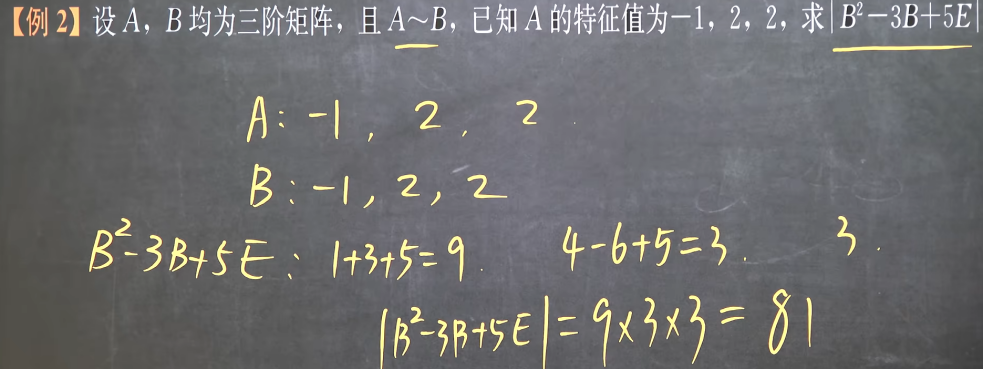 【例 2】设 A，B 均为三阶矩阵，且 A～B，已知 A 的特征值为－1，2，2，求|B²－3B＋5E|
A: -1, 2, 2
B: -1, 2, 2
B²-3B+5E: 1+3+5=9. 4-6+5=3. 3.
|B²-3B+5E|=9×3×3=81